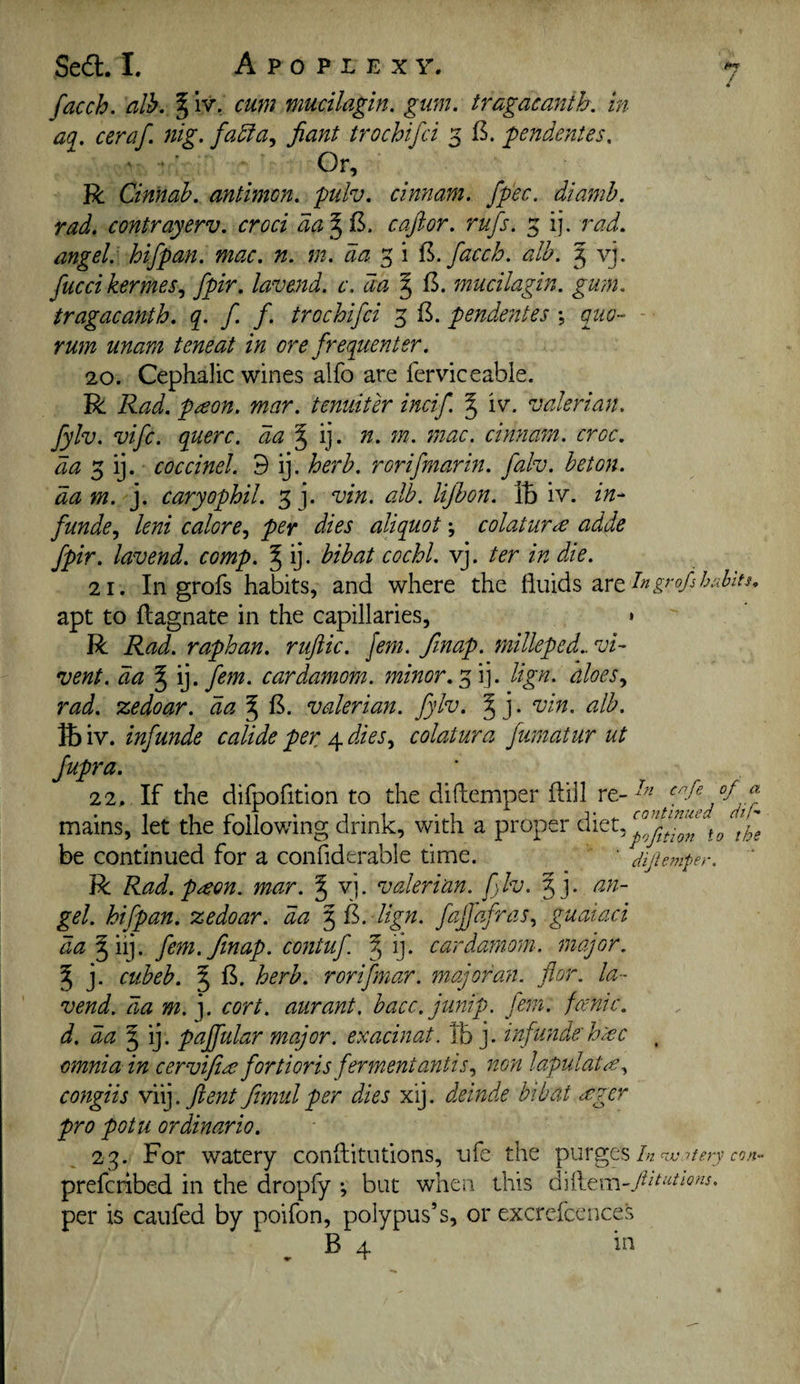 Sect. I. APOPLEXY. 7
ſacch. alb. ℥iv. cum mucilagin. gum. tragacanth. in
aq. ceraſ. nig. facta, fiant trochiſci ʒ ß. pendentes.
Or,
℞ Cinnab. antimon. pulv. cinnam. ſpec. diamb.
rad. contrayerv. croci āa ℥ ß. caſtor. ruſs. ʒ ij. rad.
angel. hiſpan. mac. n. m. āa ʒ i ß. ſacch. alb. ℥ vj.
ſucci kermes, ſpir. lavend. c. āa ℥ ß. mucilagin. gum.
tragacanth. q. ſ. f. trochiſci ʒ ß. pendentes ; quo-
rum unam teneat in ore frequenter.
20. Cephalic wines alſo are ſerviceable.
℞ Rad. pæon. mar. tenuitèr inciſ. ℥ iv. valerian.
ſylv. viſc. querc. āa ℥ ij. n. m. mac. cinnam. croc.
āa ʒ ij. coccinel. ℈ ij. herb. roriſmarin. ſalv. beton.
āa m. j. caryophil. ʒ j. vin. alb. liſbon. ℔ iv. in-
funde, leni calore, per dies aliquot ; colaturæ adde
ſpir. lavend. comp. ℥ ij. bibat cochl. vj. ter in die.
21. In groſs habits, and where the fluids are In groſs habits.
apt to ſtagnate in the capillaries,
℞ Rad. raphan. ruſtic. ſem. ſinap. milleped. vi-
vent. āa ℥ ij. ſem. cardamom. minor. ʒ ij. lign. aloes,
rad. zedoar. āa ℥ ß. valerian. ſylv. ℥ j. vin. alb.
℔ iv. infunde calide per 4 dies, colatura ſumatur ut
ſupra.
22. If the diſpoſition to the diſtemper ſtill re- In caſe of a
mains, let the following drink, with a proper diet, continued diſ-
poſition to the
be continued for a conſiderable time. diſtemper.
℞ Rad. pæon. mar. ℥ vj. valerian. ſylv. ℥ j. an-
gel. hiſpan. zedoar. āa ℥ ß. lign. ſaſſafras, guaiaci
āa ℥ iij. ſem. ſinap. contuſ. ℥ ij. cardamom. major.
℥ j. cubeb. ℥ ß. herb. roriſmar. majoran. flor. la-
vend. āa m. j. cort. aurant. bacc. junip. ſem. fœnic.
d. āa ℥ ij. paſſular major. exacinat. ℔ j. infunde hæc
omnia in cerviſiæ fortioris fermentantis, non lapulatæ,
congiis viij. ſtent ſimul per dies xij. deinde bibat æger
pro potu ordinario.
23. For watery conſtitutions, uſe the purges In watery con-
preſcribed in the dropſy ; but when this diſtem- ſtitutions.
per is cauſed by poiſon, polypus's, or excreſcences
B 4 in